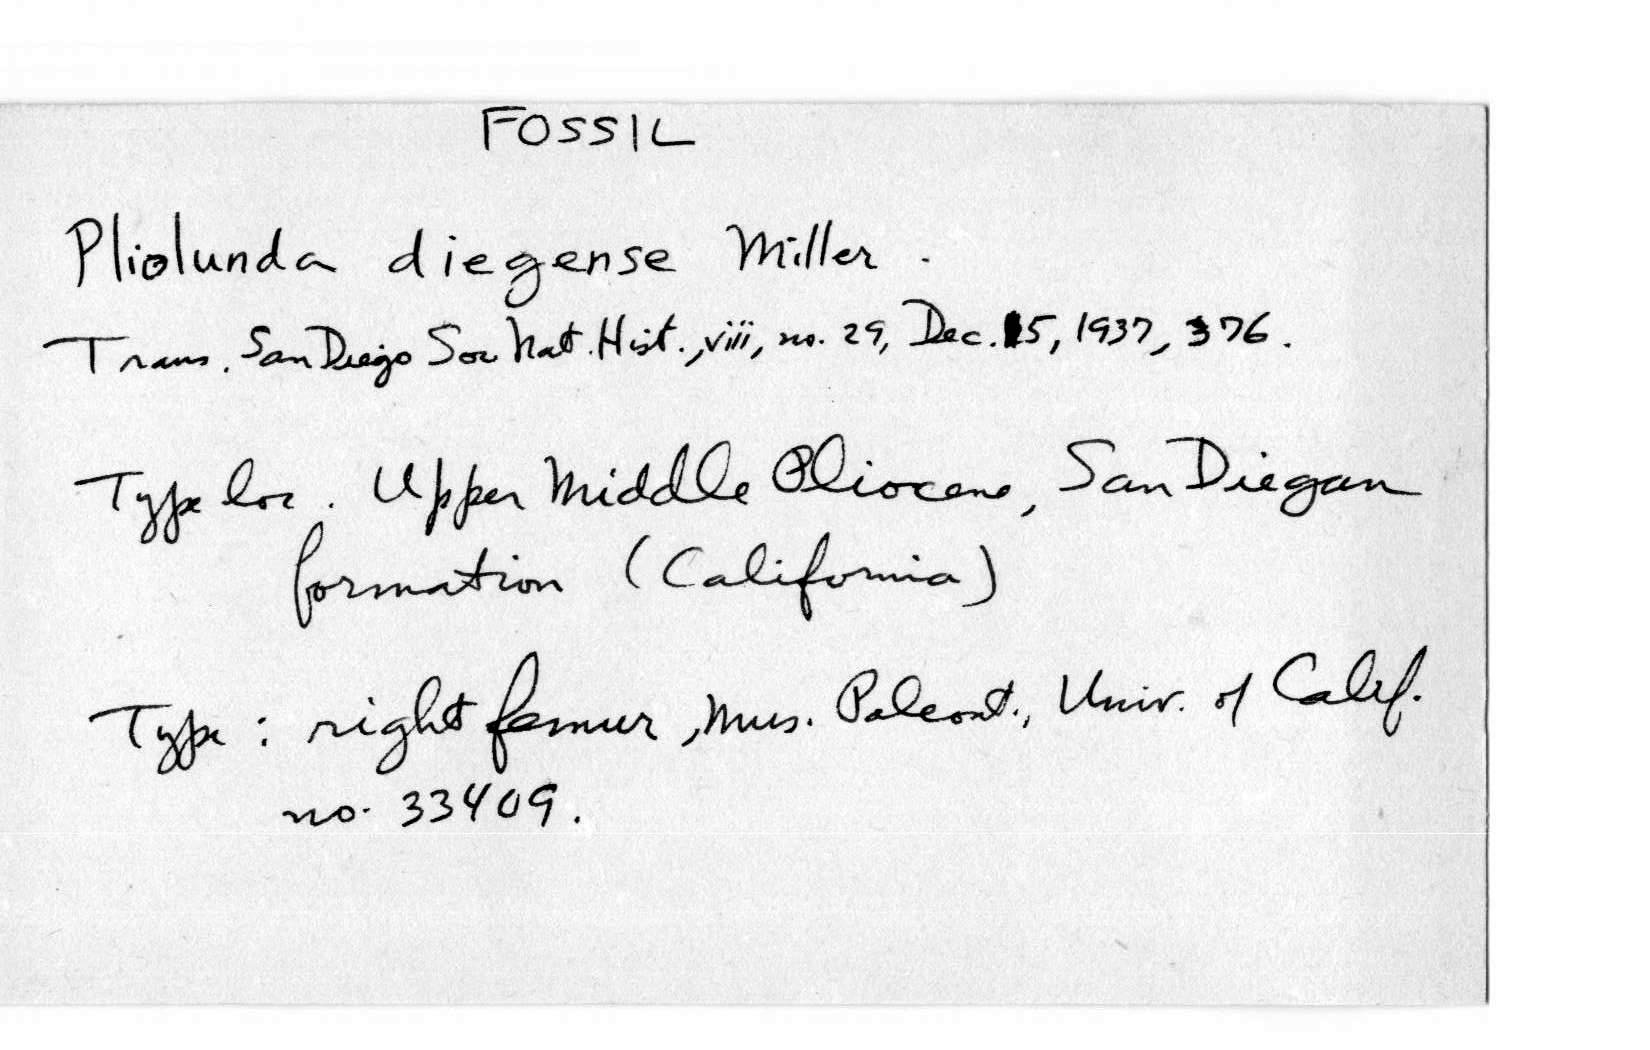 FOSSIL
Pliolunda diegense Miller.
Trans. San Diego Soc Nat. Hist., viii, no. 29, Dec. 15, 1937, 376.
Type loc. Upper Middle Pliocene, San Diegan
formation (California)
Type: right femur, Mus. Paleont., Univ. of Calif.
no. 33409.